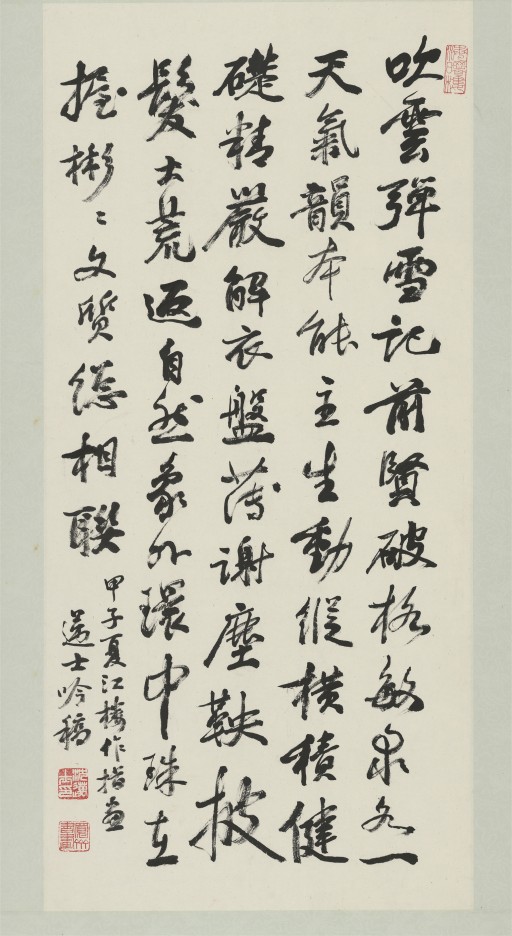 吹雲彈雪記前賢破格敏求各一
天氣韻本能主生動縱橫積健
礎精嚴解衣盤薄謝塵鞅披
髮大荒返自然象外環中珠在
握彬〻文質總相聯
甲子夏江樓作指畫
邁士吟稿